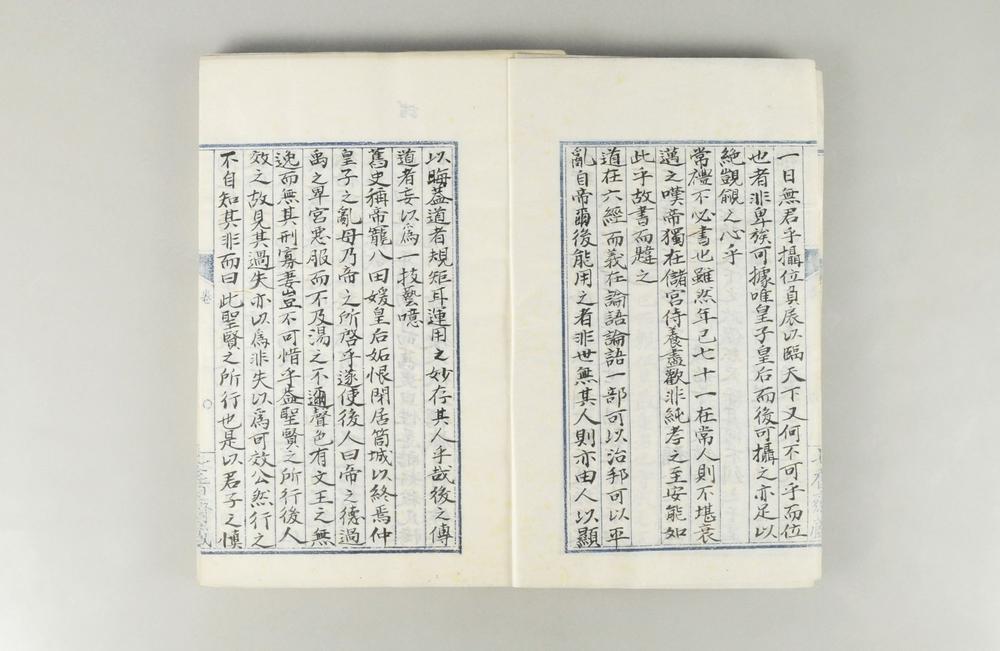 一日無君乎攝位負扆以臨天下又何不可乎而位
也者非卑族可據唯皇子皇后而後可攝之亦足以
絶覬覦之心乎
常禮不必書也雖然年已七十一在常人則不堪衰
邁之嘆帝獨在儲宮侍養盡歡非純孝之至安能如
此乎故書而韙之
道在六經而義在論語論語一部可以治邦可以平
亂自帝爾後能用之者非世無其人則亦由人以顯
以晦葢道者規矩耳運用之妙存其人乎哉後之傳
道者妄以為一技藝噫
舊史稱帝寵八田媛皇后妬恨閉居筒城以終焉仲
皇子之亂母乃帝之所啓乎遂使後人曰帝之德過
禹之卑宮惡服而不及湯之不邇聲色有文王之無
逸而無其刑寡妻豈不可惜乎葢聖賢之所行後人
效之故見其過失亦以為非失以爲可效公然行之
不自知其非而曰此聖賢之所行也是以君子之慎
卷